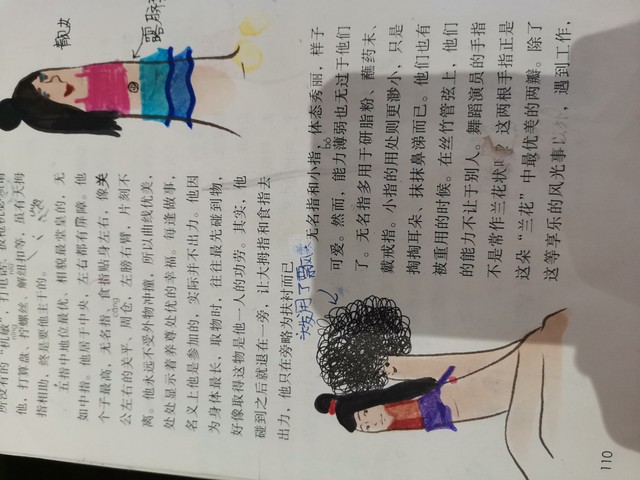 所没有的“机敏”，打电
他，打算盘、拧螺丝、解纽扣等，虽有大拇
指相助，终是要他主干的。
五指中地位最优、相貌最堂皇的，无
如中指。他居于中央，左右都有屏障。他
个子最高，无名指、食指贴身左右，像关
chēng
公左右的关平、周仓，左膀右臂，片刻不
离。他永远不受外物冲撞，所以曲线优美，
处处显示着养尊处优的幸福。每逢做事，
名义上他是参加的，实际并不出力。他因
为身体最长，取物时，往往最先碰到物，
好像取得这物是他一人的功劳。其实，他
碰到之后就退在一旁，让大拇指和食指去
出力，他只在旁略为扶衬而已
无名指和小指，体态秀丽，样子
bó
可爱。然而，能力薄弱也无过于他们
了。无名指多用于研脂粉、蘸药末、
戴戒指。小指的用处则更渺小，只是
掏掏耳朵、抹抹鼻涕而已。他们也有
被重用的时候。在丝竹管弦上，他们
的能力不让于别人。舞蹈演员的手指
不是常作兰花状 这两根手指正是
这朵“兰花”中最优美的两瓣。除了
这等享乐的风光事以外，遇到工作，
叔女
露脐
被用了
110